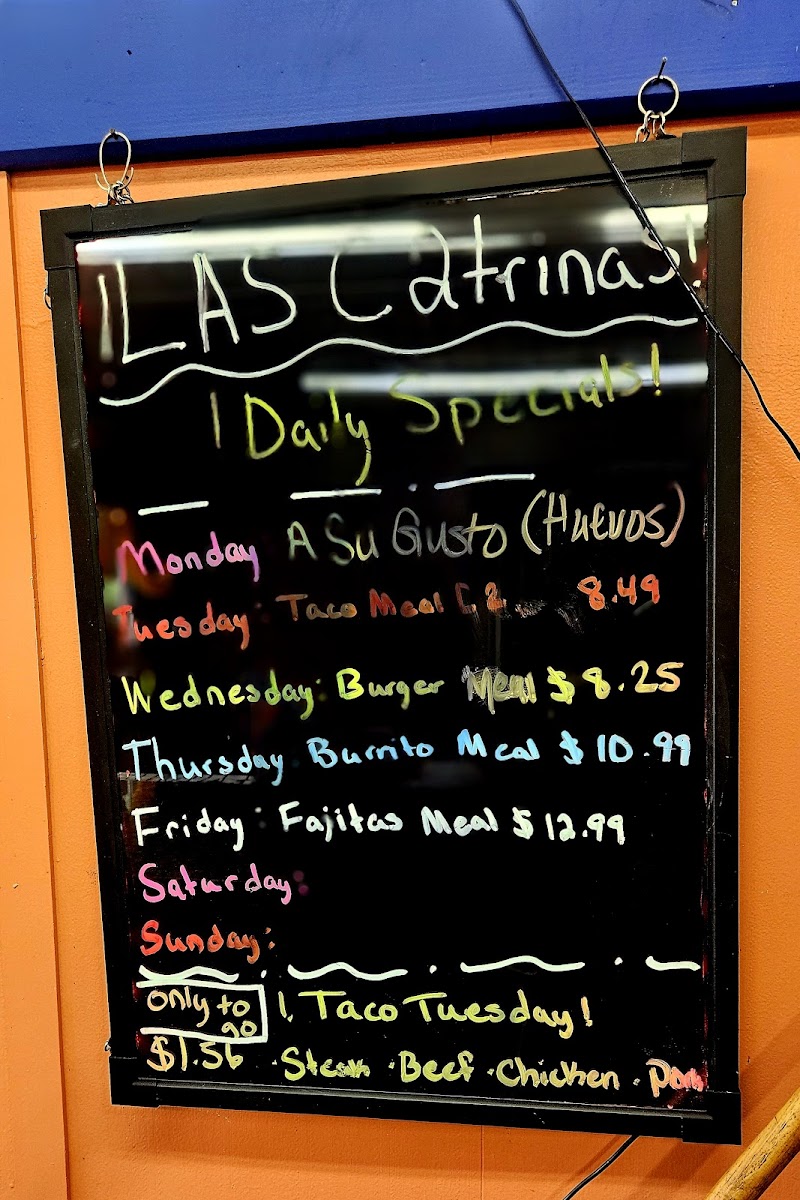 ¡LAS Catrinas!
¡Daily Specials!
Monday A Su Gusto (Huevos)
Tuesday: Taco Meal 8.49
Wednesday: Burger Meal $8.25
Thursday Burrito Meal $10.99
Friday: Fajitas Meal $12.99
Saturday:
Sunday:
only to go
¡Taco Tuesday!
$1.56 ·Steak ·Beef ·Chicken ·Pork